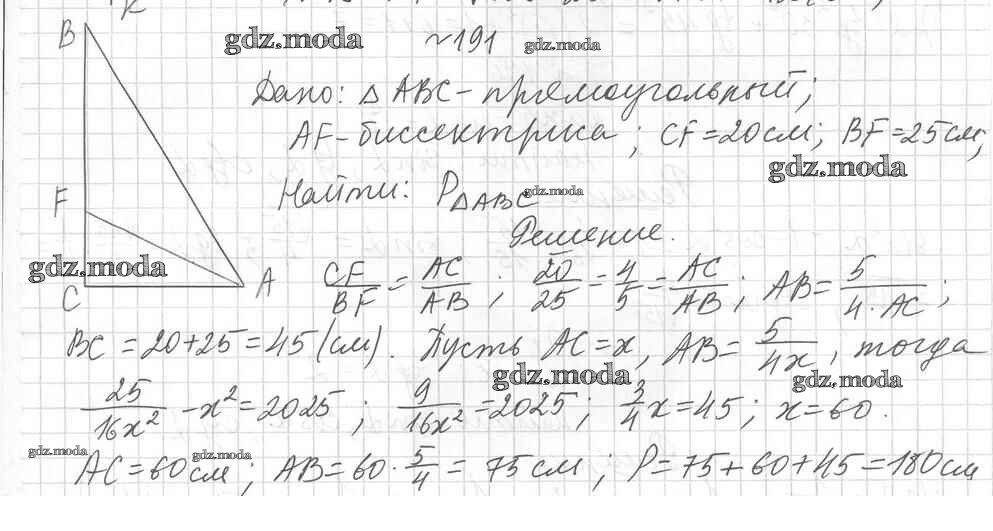 B
gdz.moda №191 gdz.moda
Дано: △ ABC - прямоугольный;
AF - биссектриса; CF = 20 см; BF = 25 см;
gdz.moda
Найти: P△ABC
gdz.moda
F
Решение.
gdz.moda
C A CF/BF = AC/AB; 20/25 = 4/5 = AC/AB; AB = 5/4·AC;
BC = 20 + 25 = 45 (см). Пусть AC = x, AB = 5/4x, тогда
gdz.moda gdz.moda
25/16x² - x² = 2025; 9/16x² = 2025; 3/4 x = 45; x = 60.
gdz.moda gdz.moda
AC = 60 см; AB = 60 · 5/4 = 75 см; P = 75 + 60 + 45 = 180 см